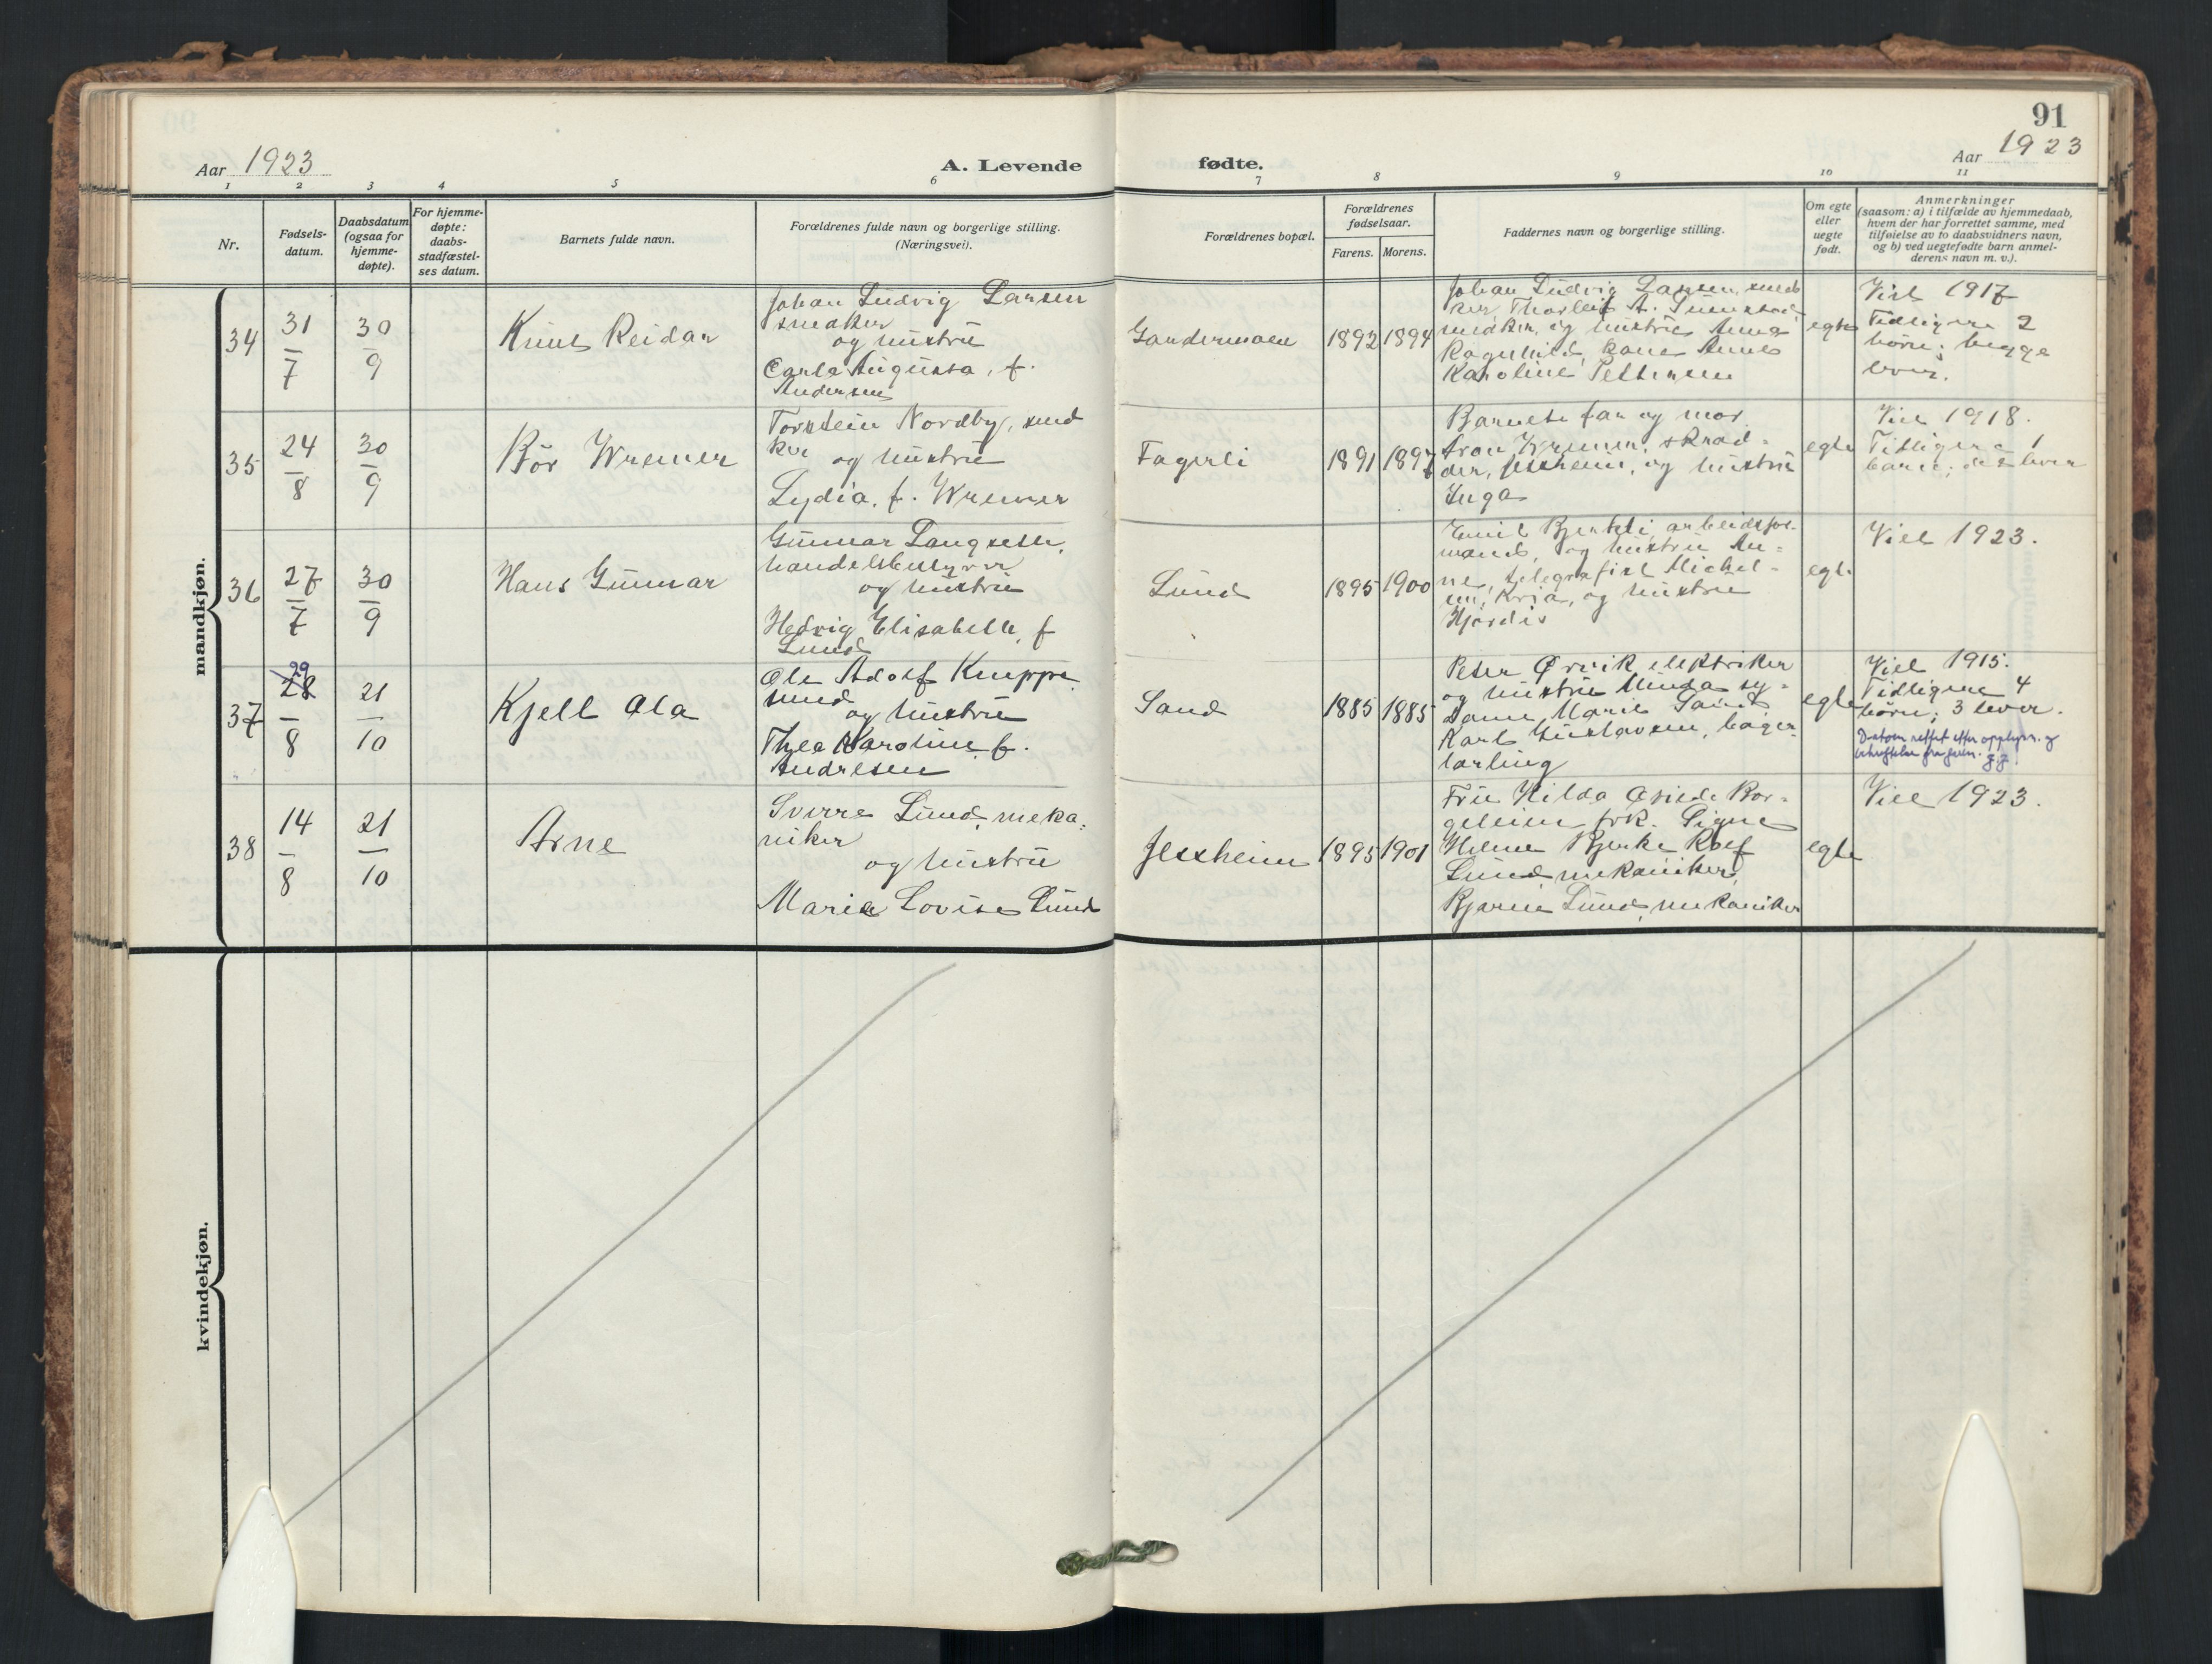 91
Aar 1923
A. Levende fødte.
Aar 1923
1 2 3 4 5 6 7 8 9 10 11
Nr.
Fødsels-
datum.
Daabsdatum
(ogsaa for
hjemme-
døpte).
For hjemme-
døpte:
daabs-
stadfæstel-
ses datum.
Barnets fulde navn.
Forældrenes fulde navn og borgerlige stilling.
(Næringsvei).
Forældrenes bopæl.
Forældrenes
fødselsaar.
Farens. Morens.
Faddernes navn og borgerlige stilling.
Om egte
eller
uegte
født.
Anmerkninger
(saasom: a) i tilfælde av hjemmedaab,
hvem der har forrettet samme, med
tilføielse av to daabsvidners navn,
og b) ved uegtefødte barn anmel-
derens navn m. v.).
mandkjøn.
34
31
7
30
9
Knut Reidar
Johan Ludvig Larsen
snedker
og hustru
Carla Augusta, f.
Andersen
Gardermoen
1892 1894
Johan Ludvig Larsen, sned
ker, Thorleif A.
snedker, og hustru Anna
Ragnhild, Anna
Karoline Pettersen
egte
Viet 1917
Tidligere 2
børn; begge
lever.
35
24
8
30
9
Bør Wremer
Torstein Nordby, sned
ker og hustru
Lydia, f. Wremer
Fagerli
1891 1897
Barnets far og mor
Wremer, skræd-
der, Jessheim, og hustru
Inga
egte
Viet 1918.
Tidligere 1
barn; det lever
36
27
7
30
9
Hans Gunnar
Gunnar Langseth,
handelsbestyrer
og hustru
Hedvig Elisabeth, f
Lund
Lund
1895 1900
Emil Bjerkeli, arbeidsfor-
mand, og hustru An-
ne, telegrafist Michel-
sen, Kria, og hustru
Hjørdis
egte
Viet 1923.
37
29
28
8
21
10
Kjell Ola
Ole Adolf Knuppe
smed
og hustru
Thea Karoline f.
Andresen
Sand
1885 1885
Peter Ørvik, elektriker
og hustru Minda sy-
dame, Marie Sand
Karl Gustavsen, bager-
lærling
egte
Viet 1915.
Tidligere 4
børn; 3 lever.
Datoen rettet efter opplysn. og
38
14
8
21
10
Arne
Sverre Lund, meka-
niker
og hustru
Marie Lovise Lund
Jessheim
1895 1901
Fru Hilda Bor-
gesen frk. Signe
Bjerke Rolf
Lund, mekaniker,
Bjarne Lund, mekaniker
egte
Viet 1923.
kvindekjøn.